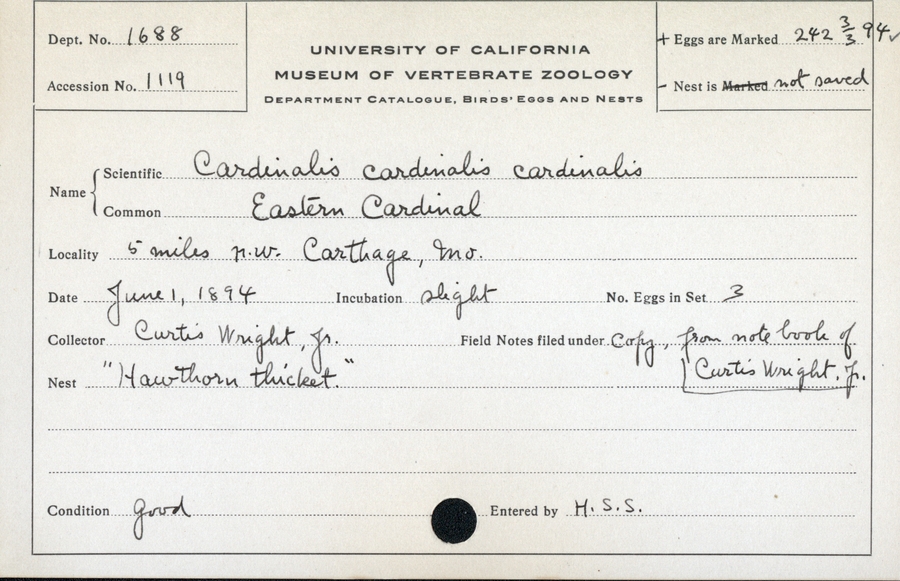 Dept. No. 1688
Accession No. 1119
UNIVERSITY OF CALIFORNIA
MUSEUM OF VERTEBRATE ZOOLOGY
DEPARTMENT CATALOGUE, BIRDS' EGGS AND NESTS
+ Eggs are Marked 242 3/3 94✓
- Nest is Marked not saved
Name { Scientific Cardinalis cardinalis cardinalis
Common Eastern Cardinal
Locality 5 miles n.w. Carthage, Mo.
Date June 1, 1894 Incubation slight No. Eggs in Set 3
Collector Curtis Wright, Jr. Field Notes filed under Copy, from note book of
Nest "Hawthorn thicket." Curtis Wright, Jr.
Condition good Entered by H.S.S.